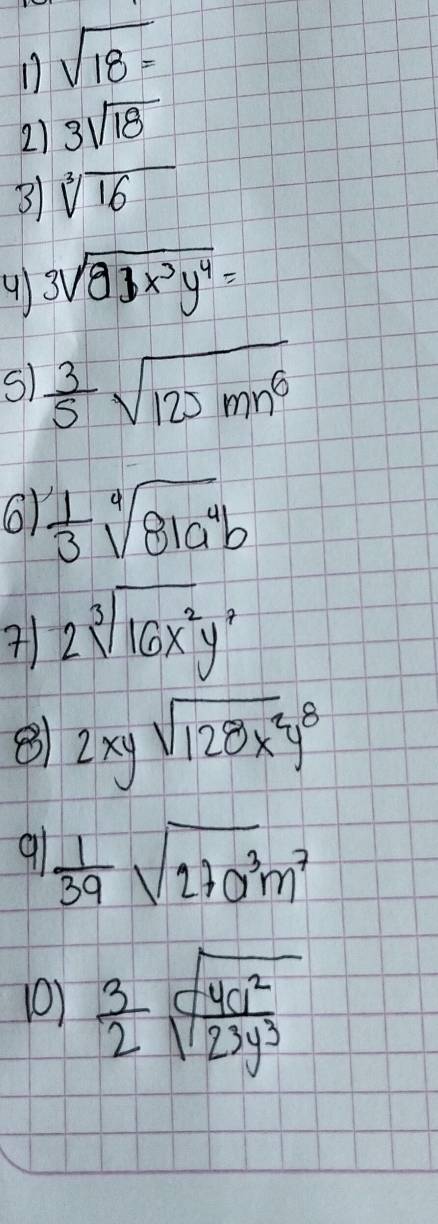 1) √18 =
2) 3√18
3) ∛16
4) 3√81x³y⁴ =
5) 3/5 √125 mn⁶
6) 1/3 ∜81a⁴b
7) 2∛16x²y⁷
8) 2xy √128x²y⁸
9) 1/39 √27a³m⁷
10) 3/2 √4a²/23y³